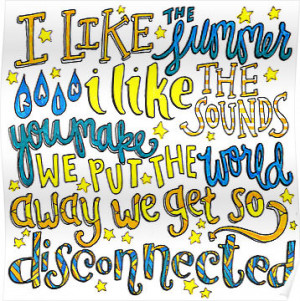 I LIKE THE SUMMER
RAIN i like THE SOUNDS
you make
WE PUT THE world
away we get so
disconnected